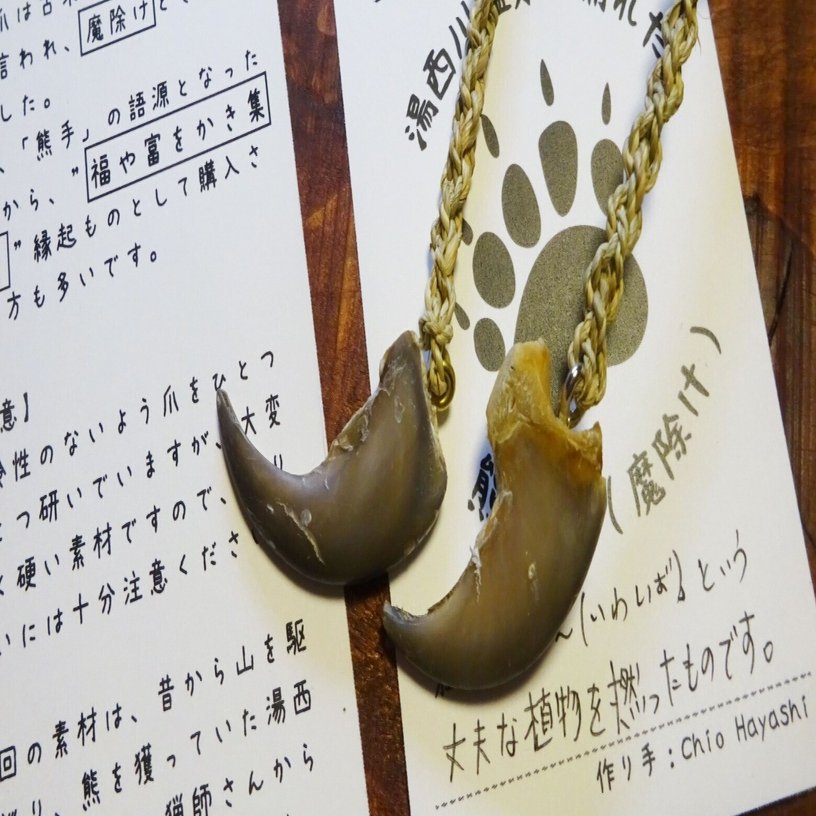 爪は古来
言われ、魔除けと
した。
、「熊手」の語源となった
から、”福や富をかき集
”縁起ものとして購入さ
方も多いです。
意】
性のないよう爪をひとつ
つ研いでいますが、大変
硬い素材ですので、
いには十分注意くださ
回の素材は、昔から山を駆
り、熊を獲っていた湯西
猟師さんから
湯西川
(魔除け)
～(いわしば)という
丈夫な植物を撚ったものです。
作り手：Chio Hayashi